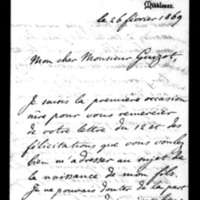 le 26 février 1869
Mon cher Monsieur Guizot,
Je saisis la première occasion
sûre pour vous remercier
de votre lettre du 12 et des
félicitations que vous voulez
bien m'adresser au sujet de
la naissance de mon fils.
Je ne pouvais douter de la part